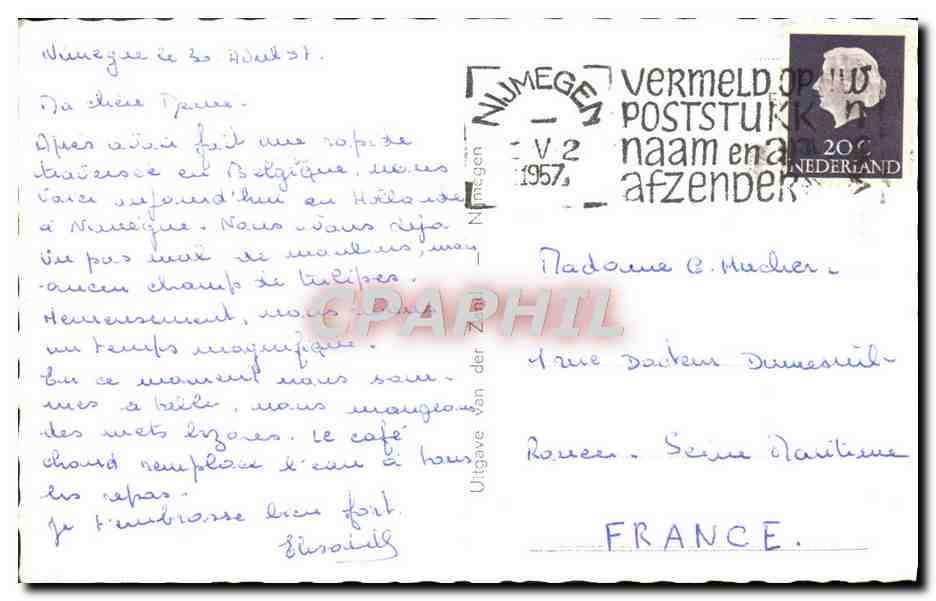 Nimègue le 30 Avril 57.
Ma chère Mémé.
Après avoir fait une rapide
traversée en Belgique, nous
voici aujourd'hui en Hollande
à Nimègue. Nous avons déjà
vu pas mal de moulins, mais
aucun champ de tulipes.
Heureusement, nous avons
un temps magnifique.
En ce moment nous som-
mes à table, nous mangeons
des mets bizares. Le café
chaud remplace l'eau à tous
les repas.
Je t'embrasse bien fort.
Elisabeth
Uitgave van der Zant – Nijmegen
NIJMEGEN
V 2
1957
VERMELD OP UW
POSTSTUKK
naam en a
afzender
20 c
NEDERLAND
Madame C. Hucher
1 rue Docteur Dumesnil
Rouen. Seine Maritime
FRANCE.
CPAPHIL